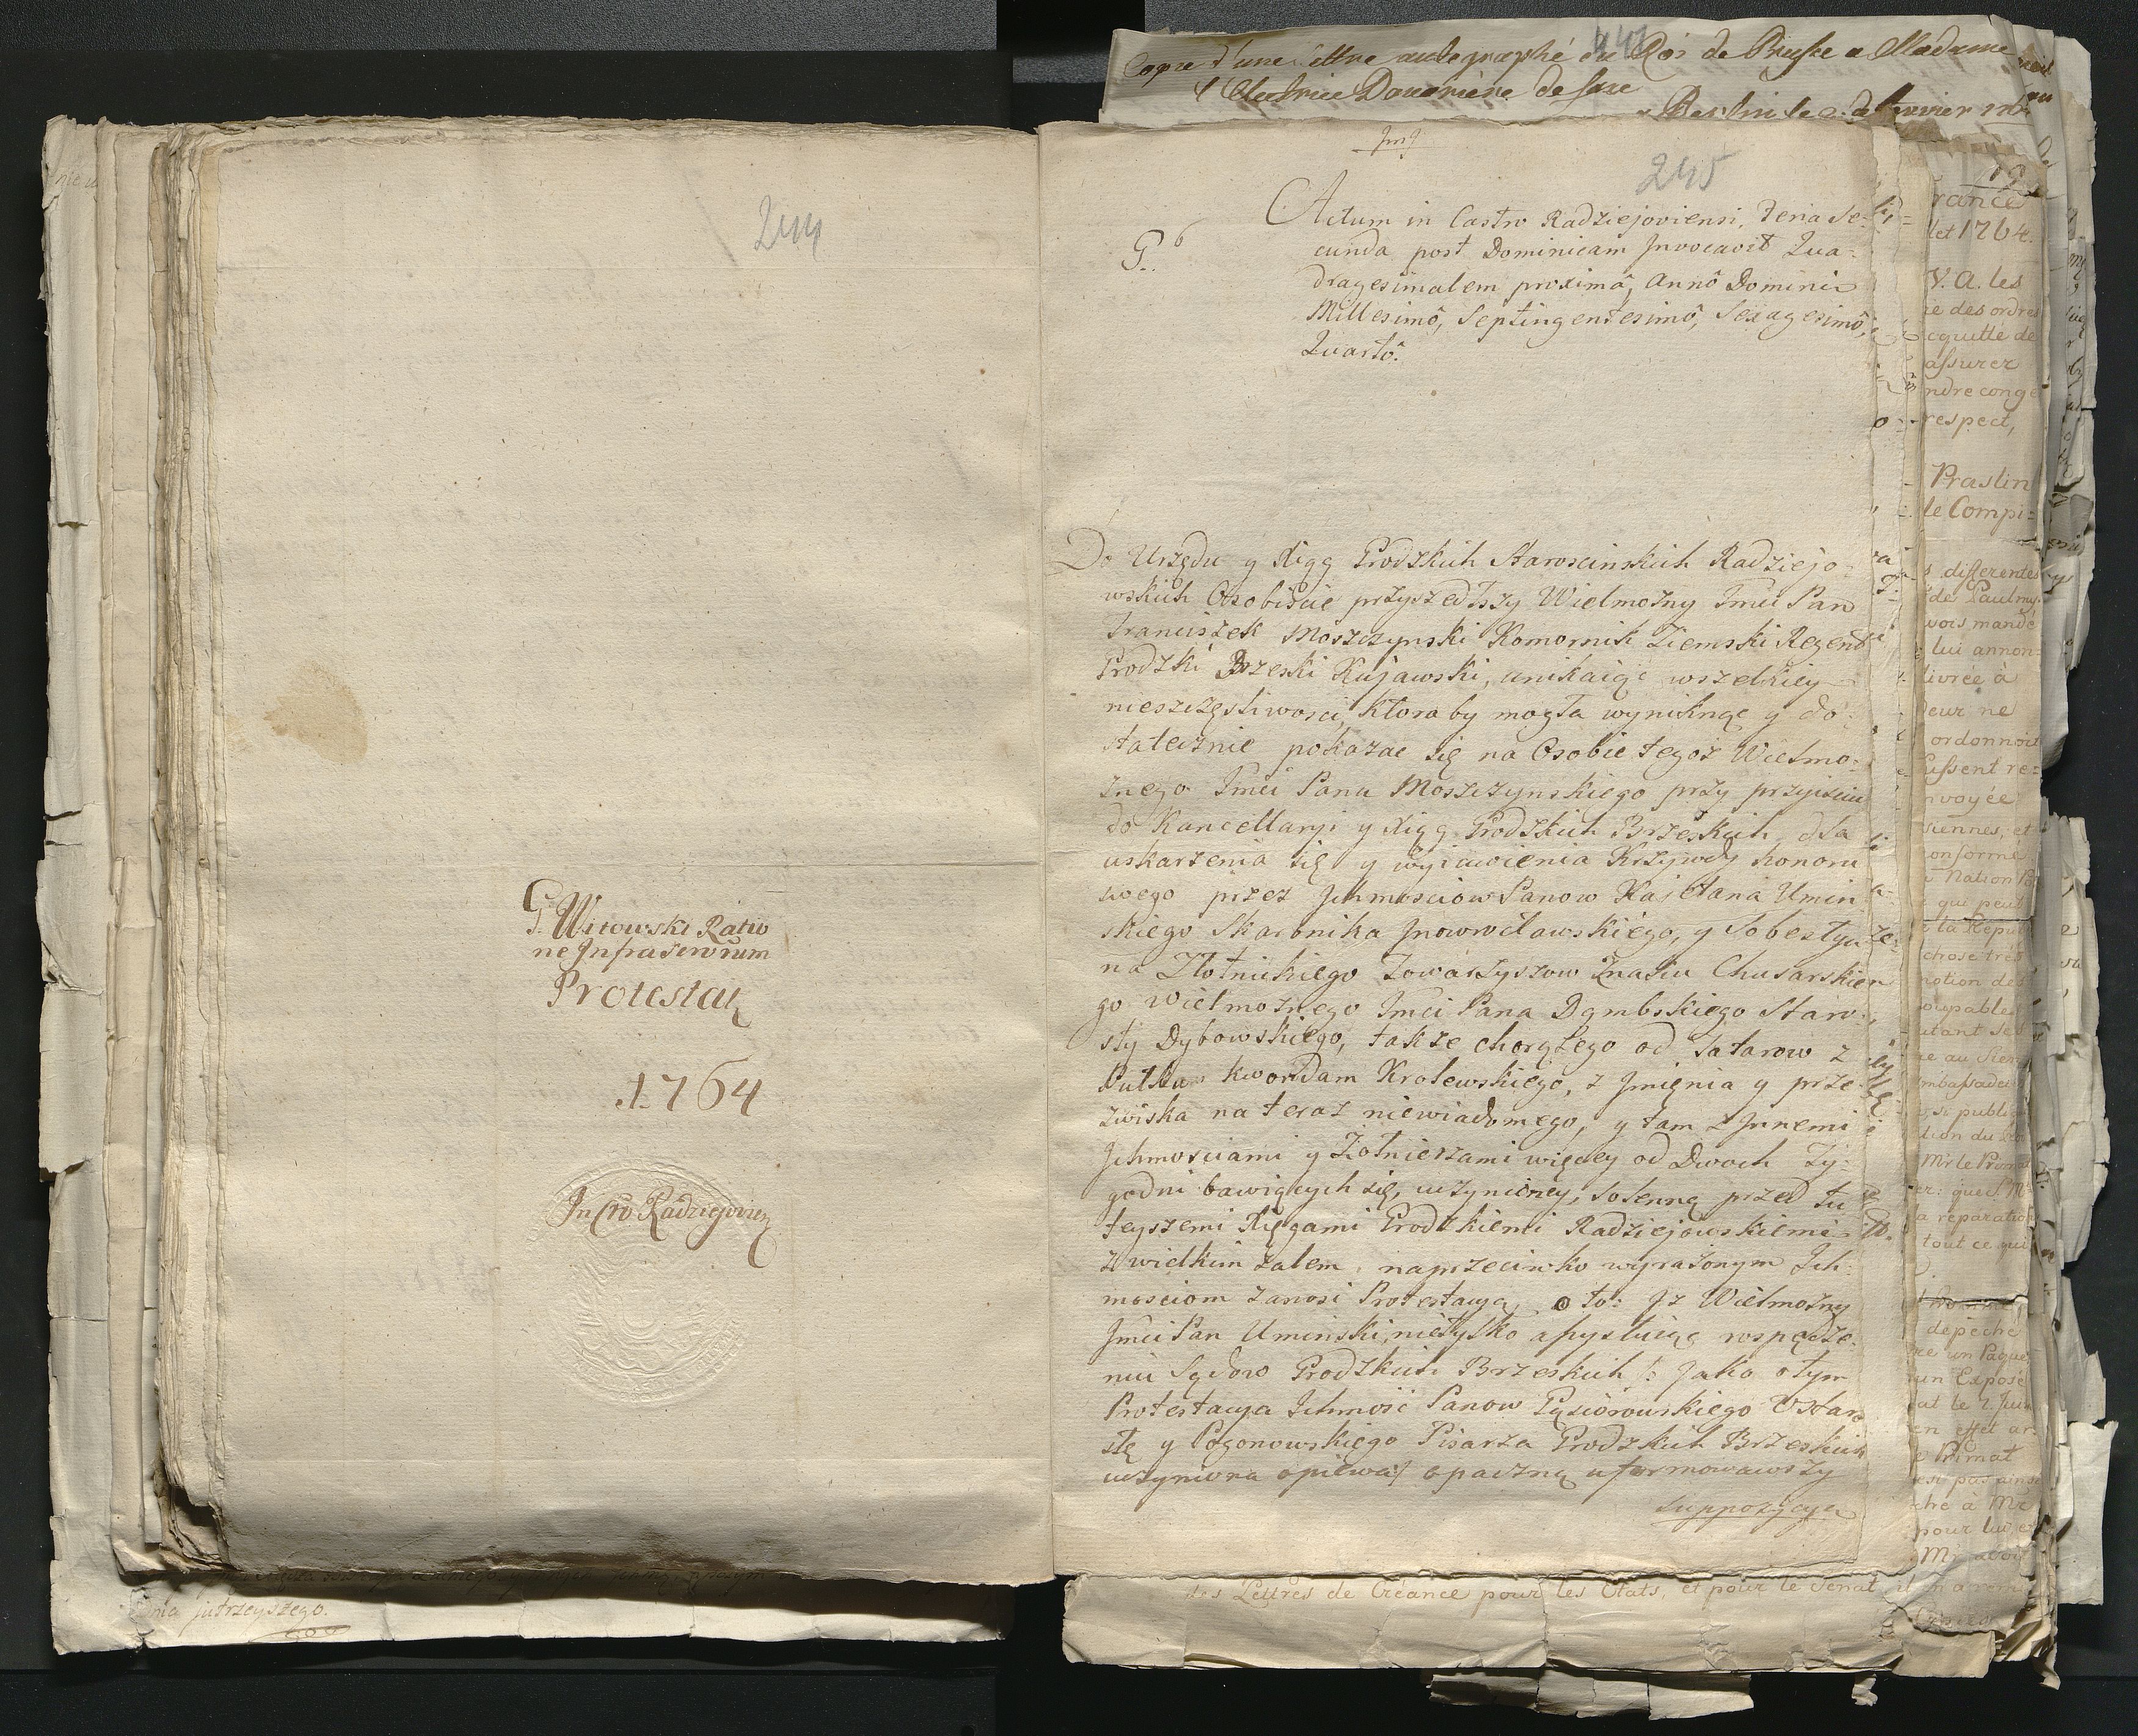 244
G. Witowski Ratio
ne Infrascriorum
Protestatz
1764
In Cro Radziejovien
dnia jutrzeyszego.
Copie d'une lettre autographé du Roi de Prusse a Madame
l'Electrice Douariere de Saxe
Berlin le
245
Actum in Castro Radziejoviensi, Feria Se-
cunda post Dominicam Invocavit Qua-
dragesimalem proximâ, Annô Domini
Millesimô, Septingentesimô, Sexagesimô,
Quartô.
Do Urzędu y Xiąg Grodzkich Staroscinskich Radziejo-
wskich Osobiście przyszedłszy Wielmożny Jmci Pan
Franciszek Moszczynski Komornik Ziemski Regent
Grodzki Brzeski Kujawski, unikaiąc wszelkiey
nieszczęśliwosci, ktoraby mogła wyniknąć y do-
statecznie pokazac się na Osobie tegoż Wielmo-
żnego Jmci Pana Moszczynskiego przy przyisciu
do Kancellaryi y Xiąg Grodzkich Brzeskich, dla
uskarzenia się y wyiawienia Krzywdy honoru
swego przez Ichmosciow Panow Kajetana Umin-
skiego Skarbnika Jnowrocławskiego, y Sobestya-
na Złotnickiego Towarzyszow Znaku Chusarskie-
go Wielmożnego Jmci Pana Dąmbskiego Staro-
sty Dybowskiego, także chorążego od Tatarow z
Pułku Kwordam Krolewskiego, z Jmięnia y prze-
zwiska na teraz niewiadomego, y tam z Jnnemi
Ichmosciami y Żołnierzami więcey od Dwoch Ty-
godni bawiących się, uczynioney, Solenną przed tu-
teyszemi Xięgami Grodzkiemi Radziejowskiemi
z wielkim żalem naprzeciwko wyrażonym Ich-
mosciom zanosi Protestacyą, o to: Jż Wielmożny
Jmci Pan Uminski, nietylko assystuiąc rospędze-
niu Sądow Grodzkich Brzeskich: Jako o tym
Protestacya Ichmość Panow Gąsiorowskiego Staro
stę y Pogonowskiego Pisarza Grodzkich Brzeskich
uczyniona opiewa/ opaczną uformowawszy
Suppozycyą
rance
let 1764.
V. A. les
ie des ordres
cquitté de
assurer
ndre congé
respect,
Praslin
de Compi=
s differentes
de Paulmy
vois mandé
lui annon=
livrée à
deur ne
ordonnoit
fussent re=
nvoyée
siennes, et
conformé
Nation
qui peut
la Repu
chose très
notion de
oupables
utant
ne au
mbassade
si public
tion du
Mr le Primat
er: que
a reparation
tout ce qui
depeche
re un Paquet
un Exposé
at le 2. Juin
en effet ar
e Primat
est pas ainsi
ché à Mr
pour lui
Mr
des Lettres de Créance pour les Etats, et pour le Senat il n'a